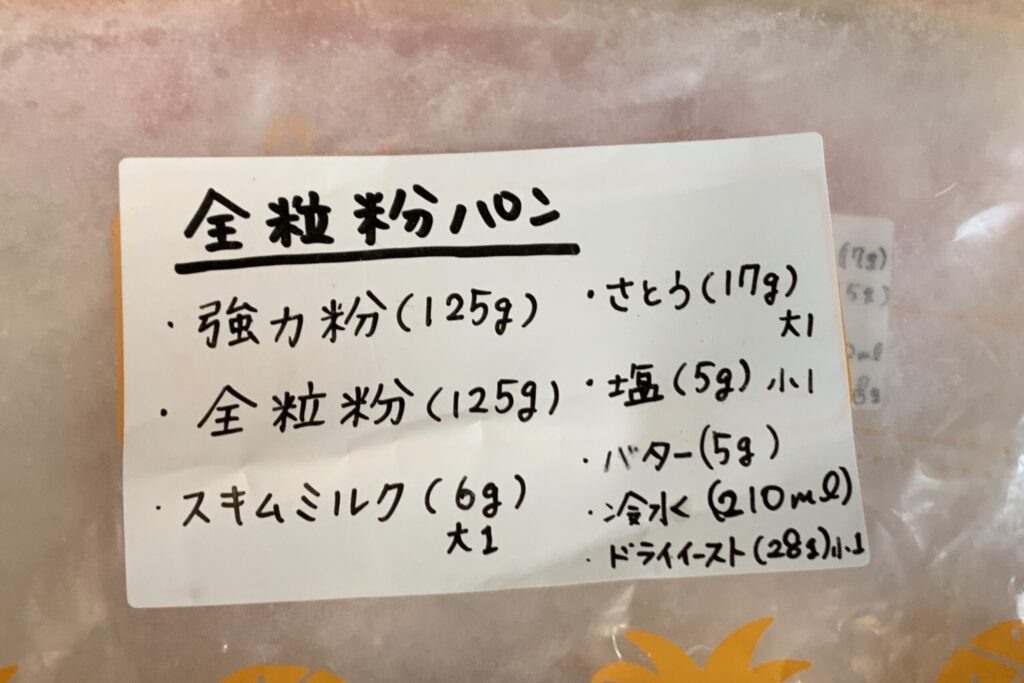 全粒粉パン
・強力粉(125g)
・全粒粉(125g)
・スキムミルク(6g)
大1
・さとう(17g)
大1
・塩(5g) 小1
・バター(5g)
・冷水(210ml)
・ドライイースト(28g)小1
(7g)
(5g)